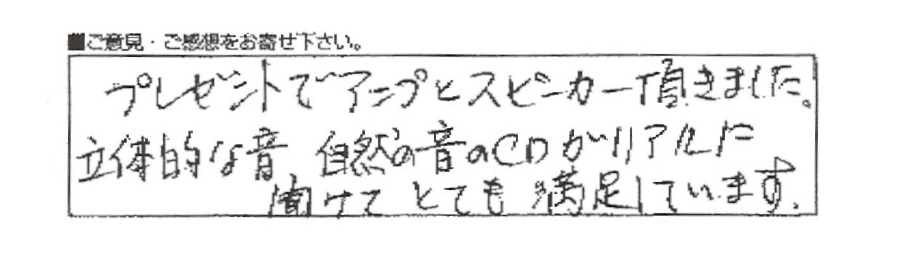 ■ご意見・ご感想をお寄せ下さい。
プレゼントでアンプとスピーカー頂きました。
立体的な音 自然の音のCDがリアルに
聞けて とても 満足しています.